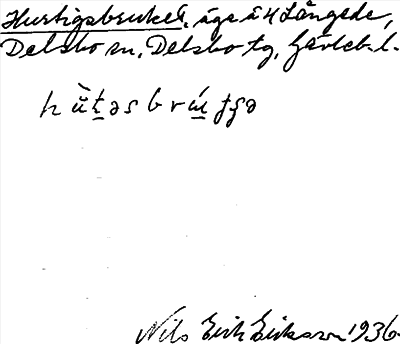 Hurtigsbruket, äga å 4 Långede,
Delsbo sn, Delsbo tg, Gävleb. l.
h ù̈ t̲ ə s b r ú̲ ʈʂ ə
Nils Erik Eriksson 1936